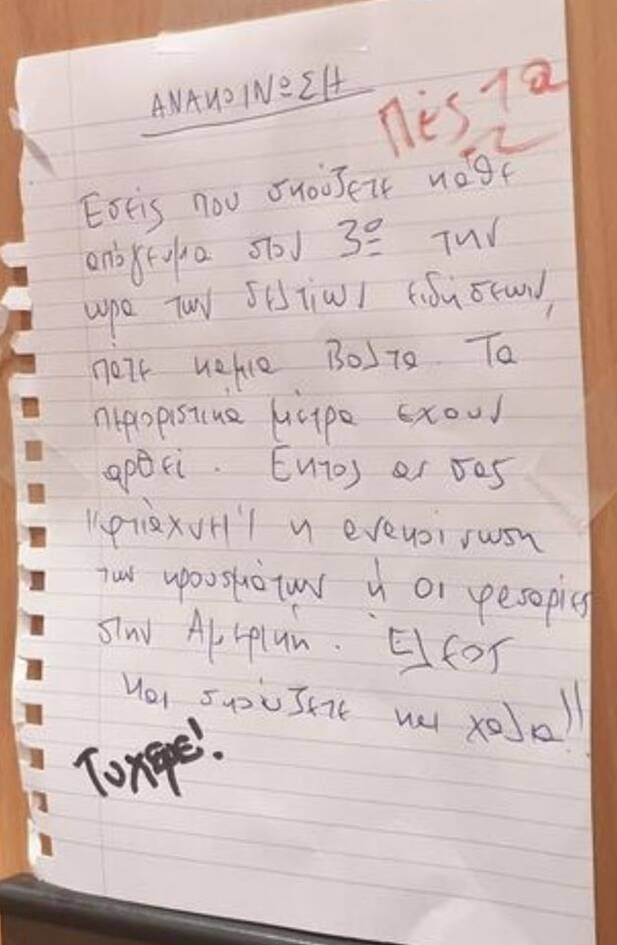 ΑΝΑΚΟΙΝΩΣΗ
Πές τα
Εσείς που σκούζετε κάθε
απόγευμα στον 3ο την
ώρα των δελτίων ειδήσεων,
πάτε καμια βολτα. Τα
περιοριστικά μέτρα εχουν
αρθεί. Εκτος αν σας
"φτιάχνει" η ανακοίνωση
των κρουσμάτων ή οι φασαρίες
στην Αμερική. Ελεος
και σκούζετε και χαλια!!
Τυχερε!